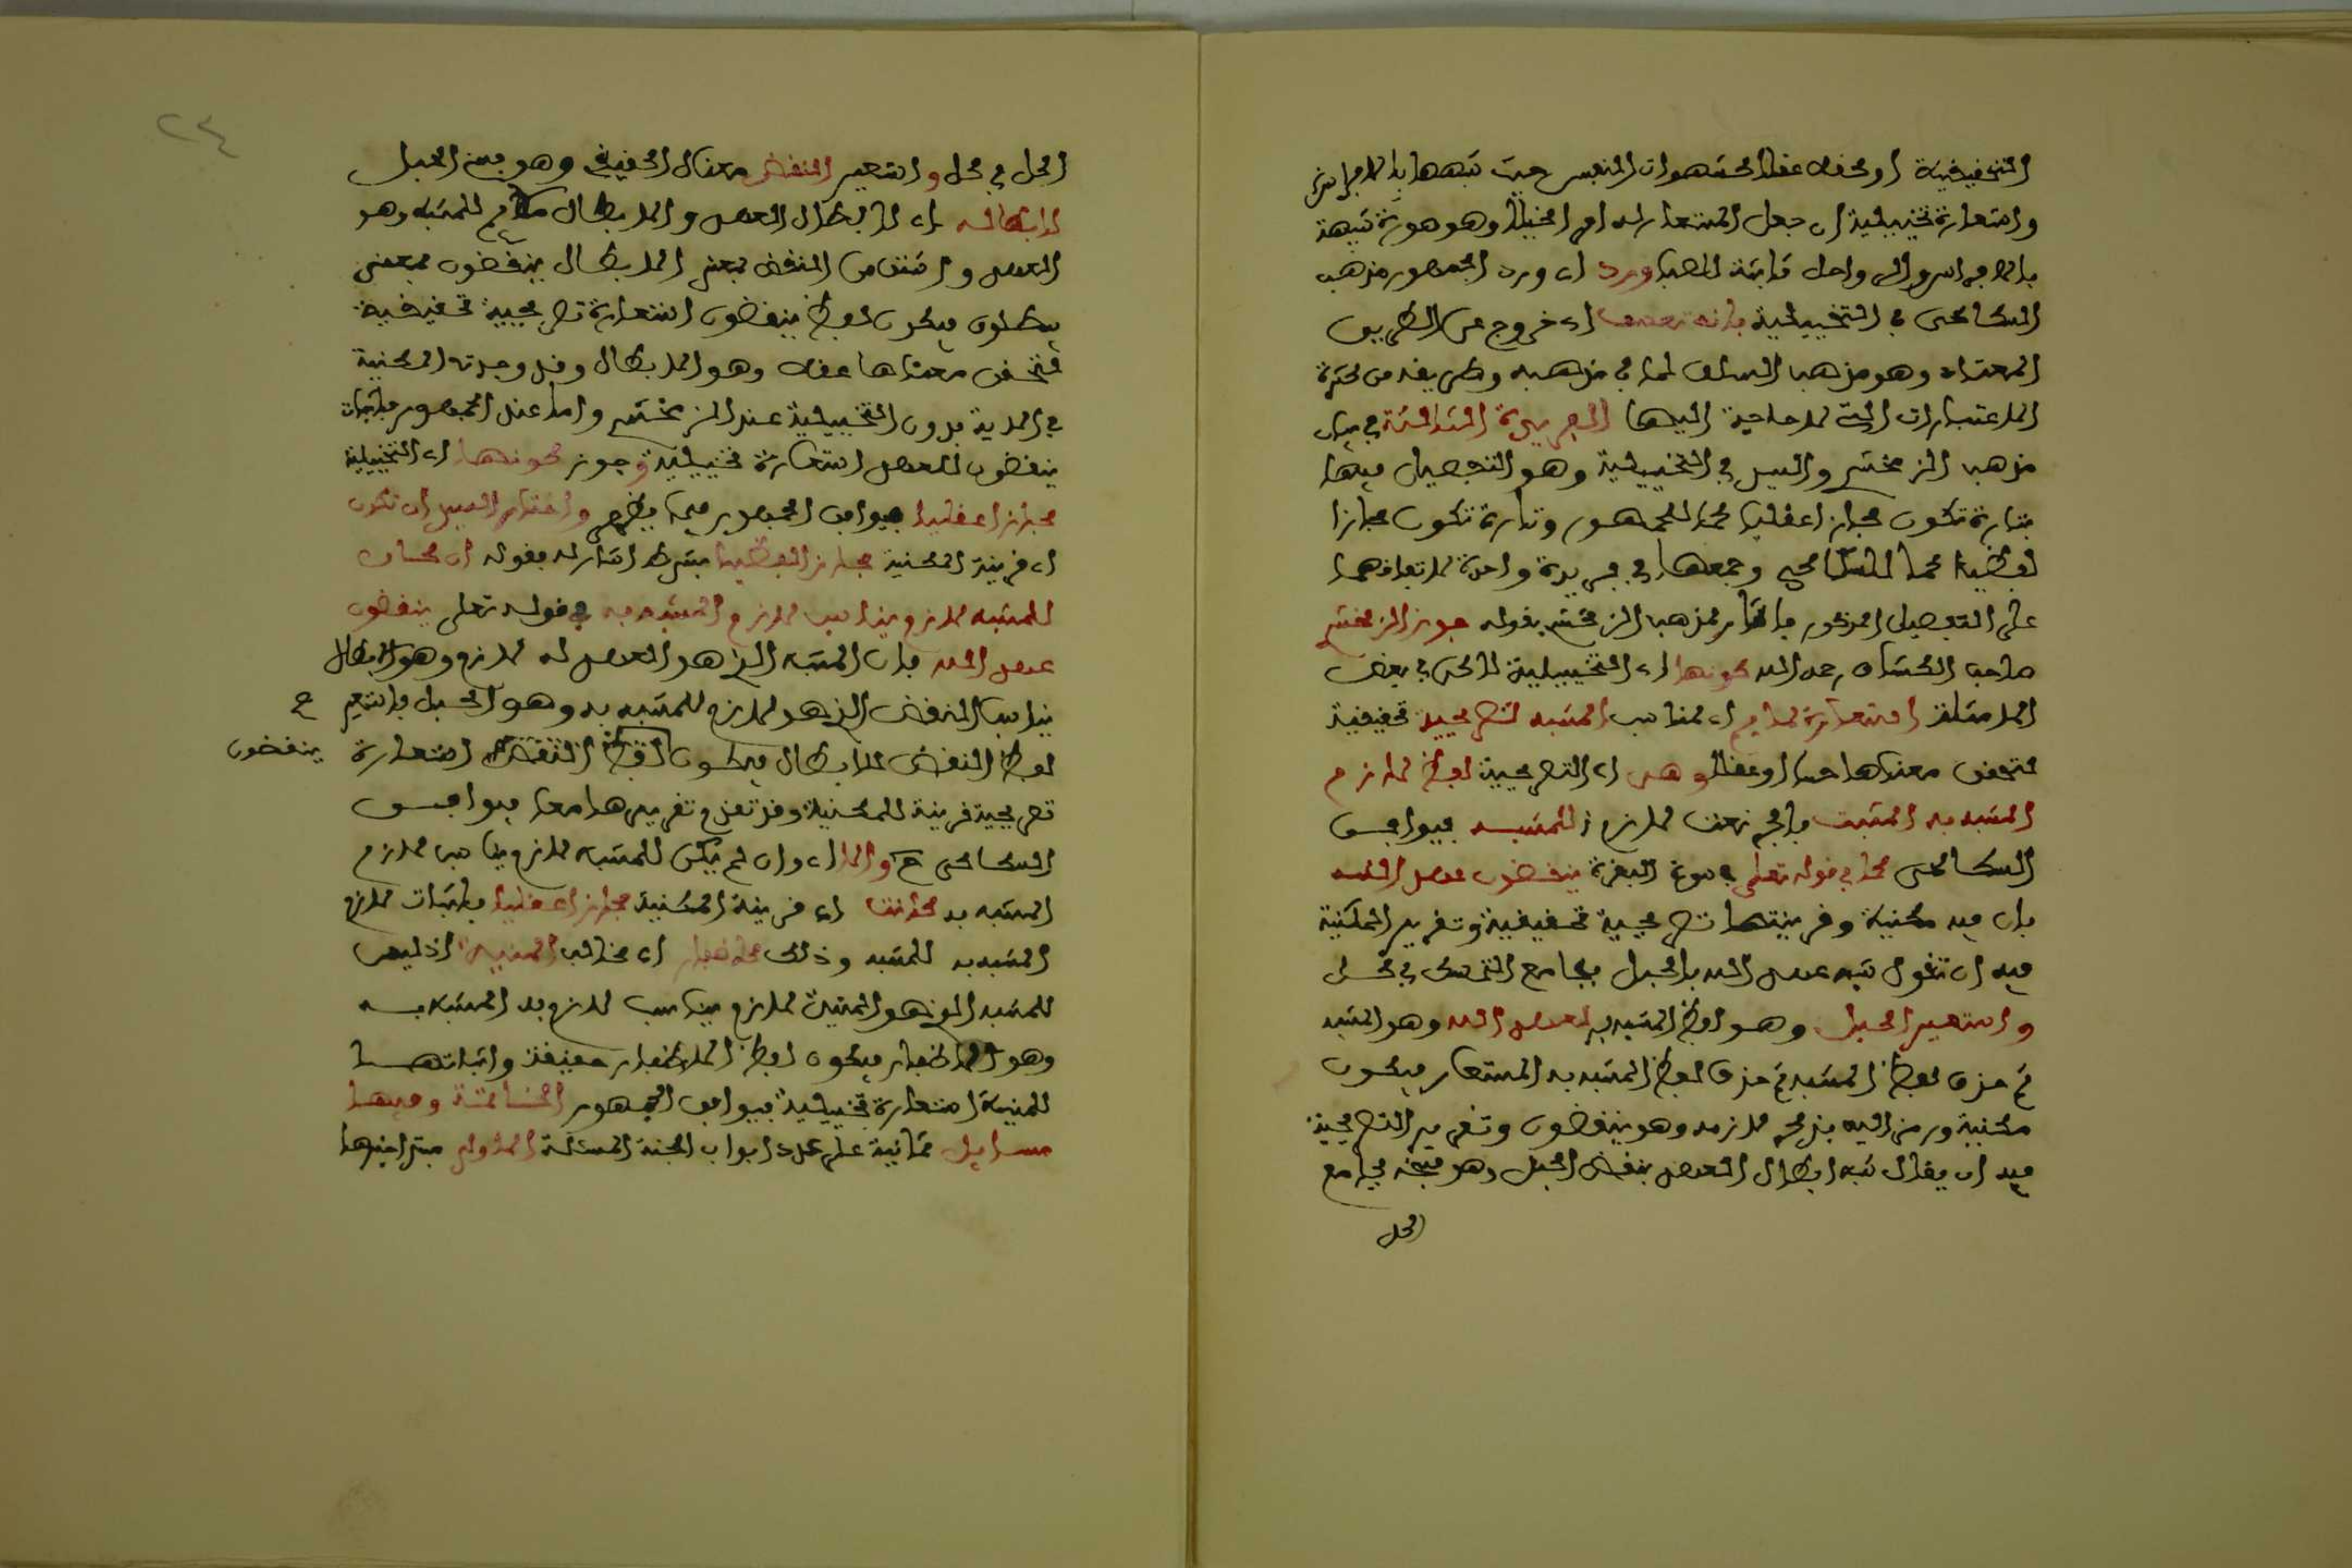 التحقيقية او محققة عقلا كشهوات النفس حيث شبهها بالافراس
واستعارة تخييلية اي جعل المستعار له امرا خياليا وهو صورة شبيهة
بالافراس والرواحل ثابتة للصبا ورد اي ورد الجمهور مذهب
السكاكي في التخييلية بانه تعسف اي خروج عن الطريق
المعتاد وهو مذهب السلف لما في مذهبه وطريقه من كثرة
الاعتبارات التي لا حاجة اليها الفريدة الثالثة في بيان
مذهب الزمخشري والسيد في التخييلية وهو التفصيل فيها
فتارة تكون مجازا عقليا كما للجمهور وتارة تكون مجازا
لفظيا كما للسكاكي وجمعها في فريدة واحدة لاتفاقهما
على التفصيل المذكور فاشار لمذهب الزمخشري بقوله جوز الزمخشري
صاحب الكشاف رحمه الله كونها اي التخييلية لاكن في بعض
الامثلة استعارة لملايم اي لمناسب المشبه تصريحية تحقيقية
لتحقق معناها حسا او عقلا وهي اي التصريحية لفظ لازم
المشبه به المثبت بالجر نعت لازم للمشبه فيوافق
السكاكي كما في قوله تعلى في سورة البقرة ينقضون عهد الله
فان فيه مكنية وقرينتها تصريحية تحقيقية وتقرير المكنية
فيه ان تقول شبه عهد الله بالحبل بجامع التمسك في كل
واستعير الحبل وهو لفظ المشبه به لعهد الله وهو المشبه
ثم حذف لفظ المشبه ثم حذف لفظ المشبه به المستعار فيكون
مكنية ورمز اليه بذكر لازمه وهو ينقضون وتقرير التصريحية
فيه ان يقال شبه ابطال العهد بنقض الحبل وهو فتحه بجامع
الحل
٢٤
الحل في كل واستعير النقض معناه الحقيقي وهو فتح الحبل
لابطاله اي لابطال العهد والابطال ملايم للمشبه وهو
العهد واشتق من النقض بمعنى الابطال ينقضون بمعنى
يبطلون فيكون لفظ ينقضون استعارة تصريحية تحقيقية
لتحقق معناها عقلا وهو الابطال وقد وجدت المكنية
في الاية بدون التخييلية عند الزمخشري واما عند الجمهور فاثبات
ينقضون للعهد استعارة تخييلية وجوز كونها اي التخييلية
مجازا عقليا فيوافق الجمهور فيما يظهر واختار السيد ان تكون
اي قرينة المكنية مجازا لفظيا بشرط اشار له بقوله ان كان
للمشبه لازم يناسب لازم المشبه به في قوله تعلى ينقضون
عهد الله فان المشبه الذي هو العهد له لازم وهو الابطال
يناسب النقض الذي هو لازم للمشبه به وهو الحبل فاستعير ح
لفظ النقض للابطال فيكون لفظ النقض استعارة ينقضون
تصريحية قرينة للمكنية وقد تقدم تقريرهما معا فيوافق
السكاكي ح والا اي وان لم يكن للمشبه لازم يناسب لازم
المشبه به كانت اي قرينة المكنية مجازا عقليا باثبات لازم
المشبه به للمشبه وذلك كاظفار اي مخالب المنية اذ ليس
للمشبه الذي هو المنية لازم يناسب لازم المشبه به
وهو الاظفار فيكون لفظ الاظفار حقيقة واثباتها
للمنية استعارة تخييلية فيوافق الجمهور الخاتمة وفيها
مسائل ثمانية على عدد ابواب الجنة المسئلة الاولى